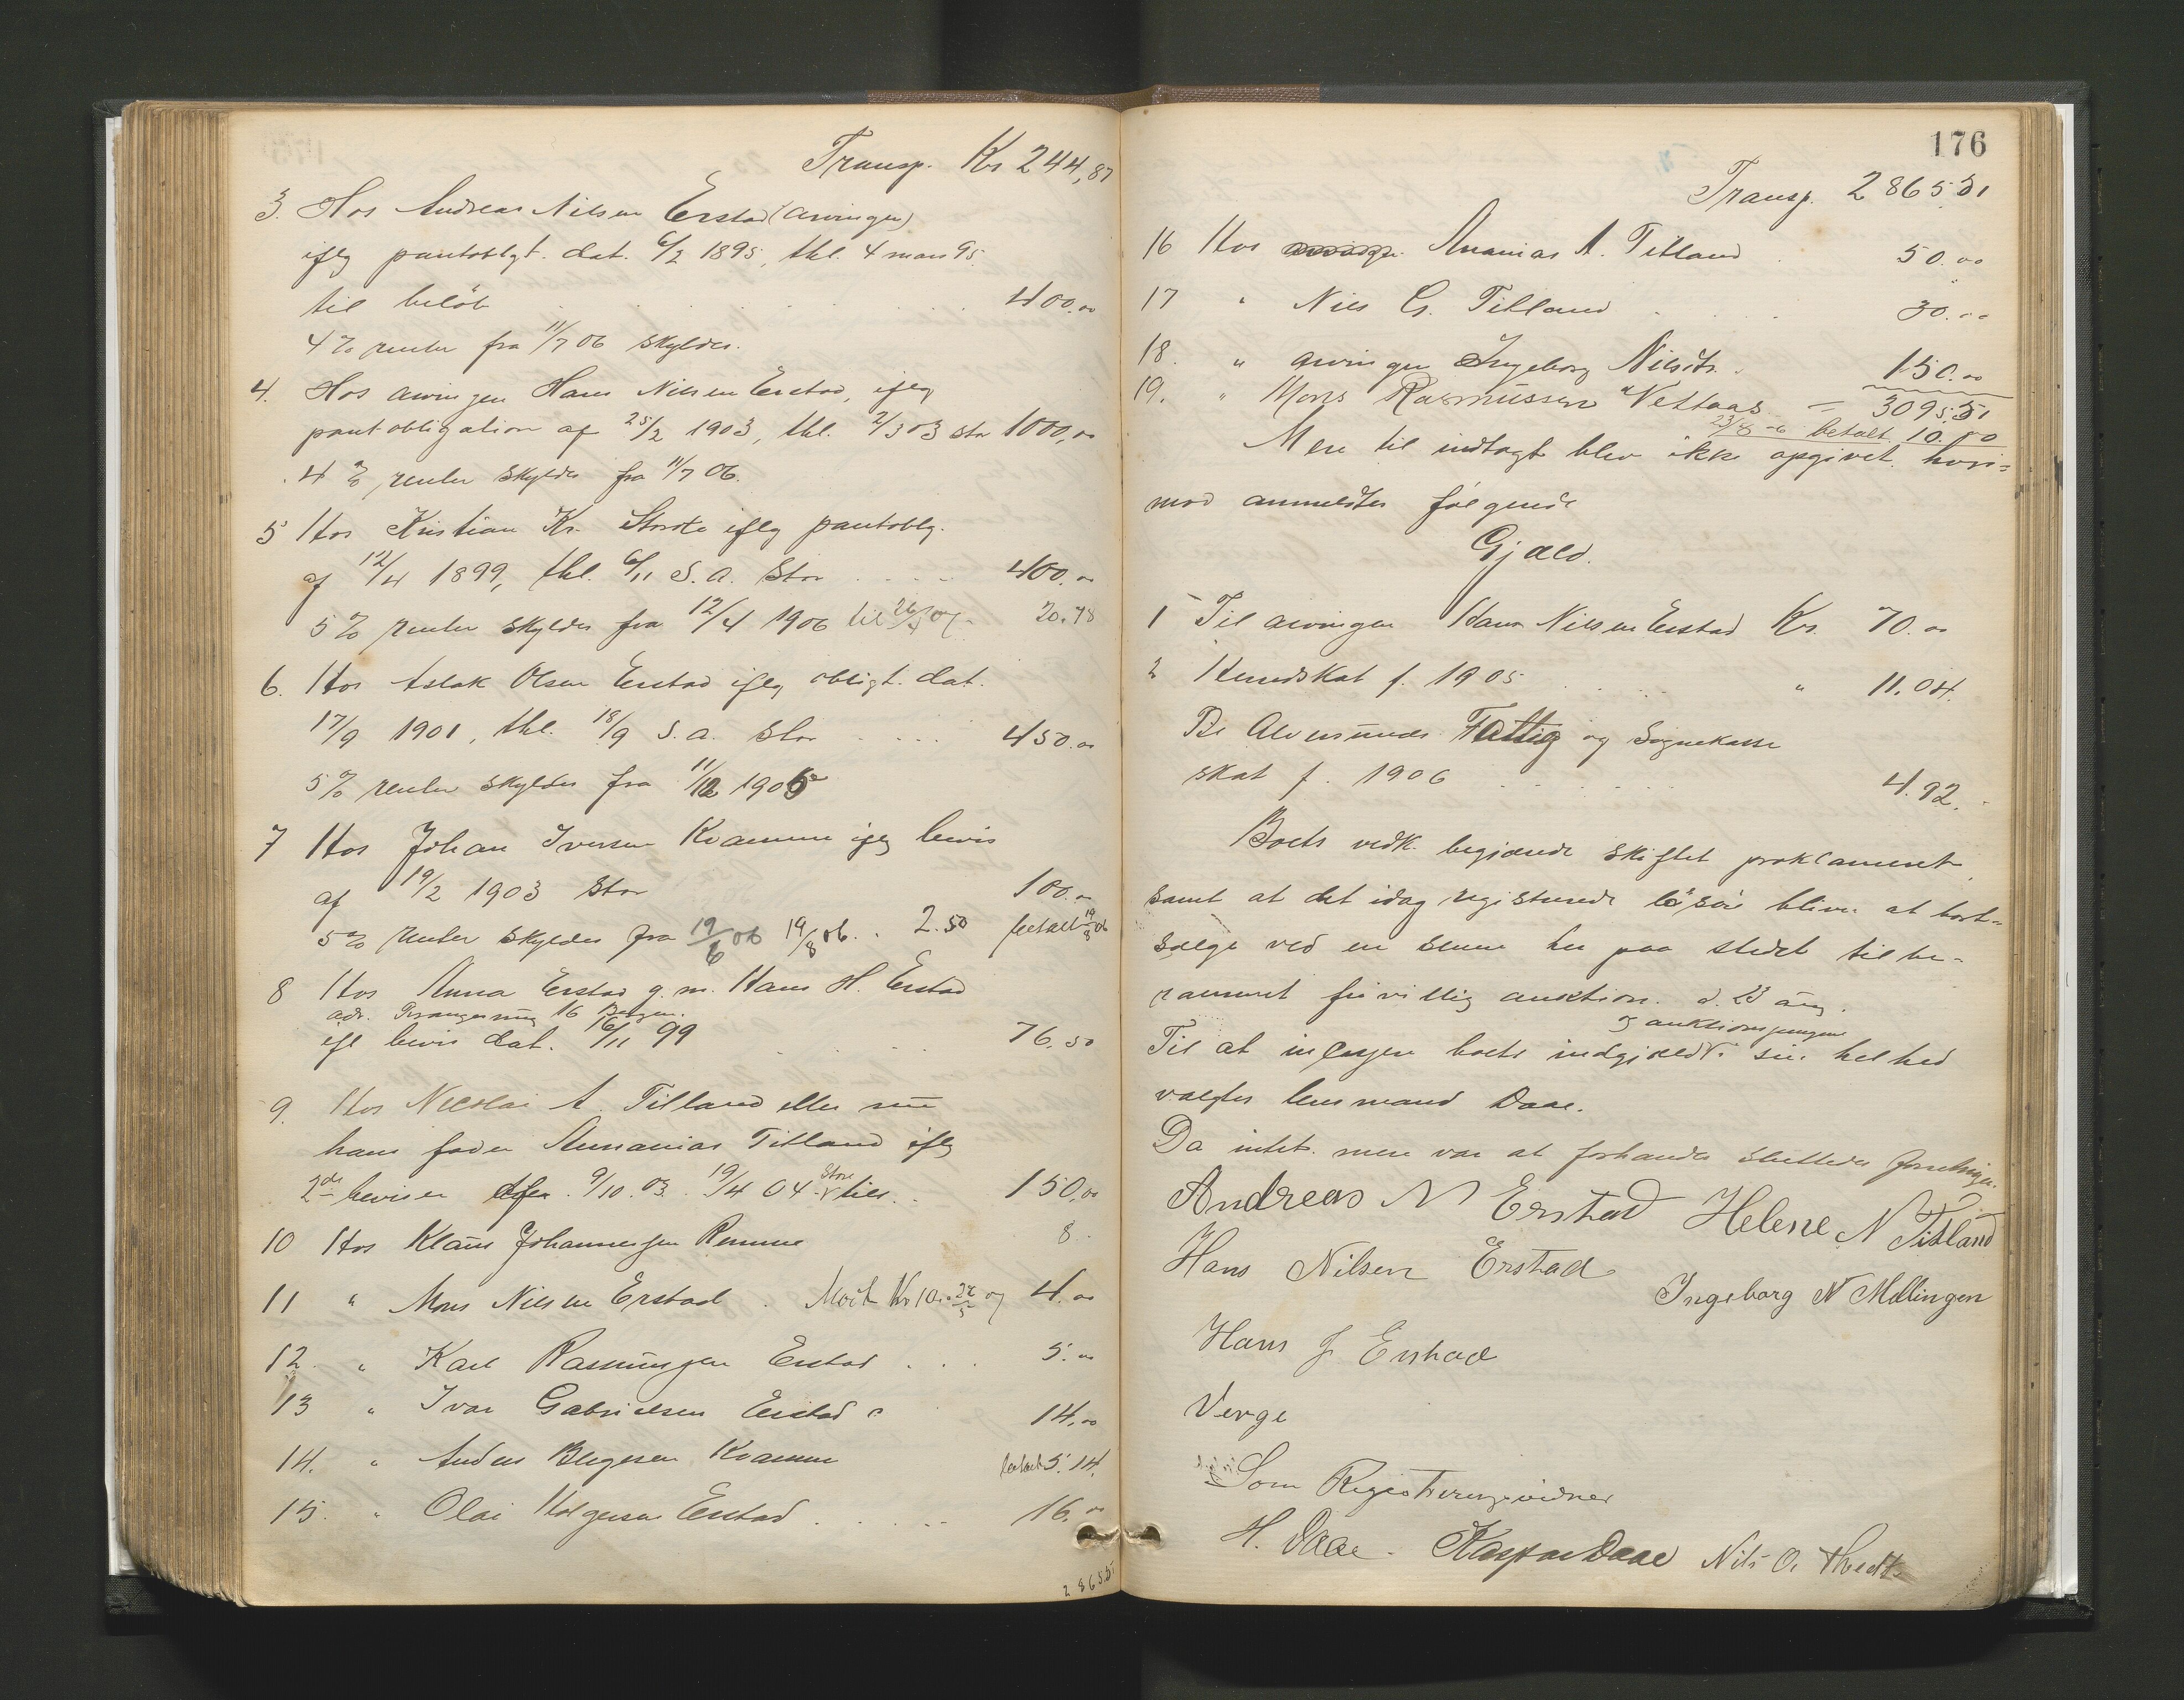 Transp. Kr 244,87
3. Hos Andreas Nilsen Erstad (arvingen)
iflg pantobligt. dat. 6/2 1895, thl. 4 mars 95
til beløb 400.00
4 % renter fra 11/7 06 skyldes.
4. Hos arvingen Hans Nilsen Erstad, iflg
pantobligation af 25/2 1903, thl. 2/3 03 stor 1000,00
4 % renter skyldes fra 11/7 06.
5 Hos Kristian Kr. iflg pantoblg.
af 12/4 1899, thl. 6/11 S. A. Stor 400.00
5 % renter skyldes fra 12/4 1906 til 26/4 07 20.78
6. Hos Aslak Olsen Erstad iflg obligt. dat.
17/9 1901, thl. 18/9 S. a. Stor 450.00
5 % renter skyldes fra 1906
7 Hos Johan Iversen Kvamme iflg bevis
af 19/2 1903 Stor 100.00
5 % renter skyldes fra 19/6 06 19/8 06. 2.50 betalt 19/8 06
8 Hos Anna Erstad g. m. Hans H. Erstad
adr. 16 Bergen.
ifl bevis dat. 16/11 99 76.50
9. Hos Nicolai A. Titland eller
hans fader Annanias Titland iflg
2de beviser 9/10 03. 19/4 04 Store tils. 150.00
10 Hos Klaus Johannessen Remme 8
11 " Mons Nilsen Erstad . Kr 10 og 4.00
12. " Karl Rasmussen Erstad . . . 5.00
13 " Ivar Gabrielsen Erstad 14.00
14. " Anders Kvamme betalt 5.14.
15. " Olai Holgersen Erstad 16.00
2865.51
176
Transp. 2865.51
16 Hos Ananias A. Titland 50.00
17 " Nils G. Titland 30.00
18. " arvingen Ingeborg Nilsdtr. 150.00
19. " Mons Rasmussen Vetaas = 3095.51
23/8 06 betalt 10.00
Mere til indtægt blev ikke opgivet. hvori-
mod anmeldtes følgende
Gjæld.
1 Til arvingen Hans Nilsen Erstad Kr. 70.00
2 Herredskat f. 1905 " 11.04.
Alversunds Fattig og Sognekasse
skat f. 1906 4.92.
Boets vedk. begjærede skiftet proklameret,
samt at det idag registrerede løsøre bliver at bort-
sælge ved en senere her paa stedet til be-
rammet frivillig auktion. d. 23 aug.
og auktionspengene
Til at incassere boets indgjæld i sin helhed
valgtes lensmand Daae.
Da intet mere var at forhandle sluttedes forretningen.
Andreas N Erstad Helene N Titland
Hans Nilsen Erstad
Ingeborg N Mellingen
Hans J Erstad
Verge
Som Registreringsvidner
H. Daae. Kaspar Daae Nils O.